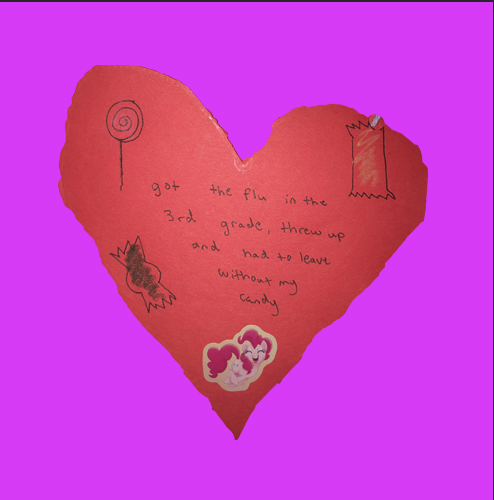 got the flu in the
3rd grade, threw up
and had to leave
without my
candy